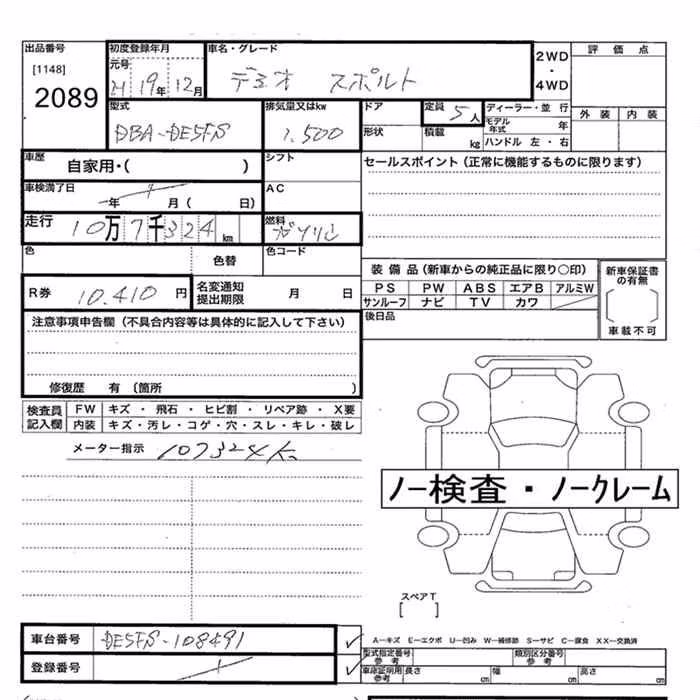 出品番号 初度登録年月 車名・グレード 2WD ・ 4WD 評価点
[1148]
2089
元号 H 19年 12月 デミオ スポルト
外装 内装
型式 排気量又はkw ドア 定員 5人 ディーラー・並行
モデル年式 年
DBA-DE5FS 1.500 形状 積載 kg ハンドル 左・右
車歴 自家用・( ) シフト セールスポイント(正常に機能するものに限ります)
車検満了日 年 月( 日) AC
走行 10万7千324km 燃料 ガソリン
色 色替 色コード
装備品(新車からの純正品に限り〇印) 新車保証書の有無
R券 10.410円 名変通知提出期限 月 日
PS PW ABS エアB アルミW
サンルーフ ナビ TV カワ
[ ]
車載不可
後日品
注意事項申告欄(不具合内容等は具体的に記入して下さい)
修復歴 有 (箇所 )
検査員記入欄 FW キズ・飛石・ヒビ割・リペア跡・X要
内装 キズ・汚レ・コゲ・穴・スレ・キレ・破レ
メーター指示 107324K
ノー検査・ノークレーム
スペアT
[ ]
車台番号 DE5FS-108491
A-キズ E-エクボ U-凹み W-補修跡 S-サビ C-腐食 XX-交換済
型式指定番号 参考 類別区分番号 参考
登録番号
車庫証明用 参考 長さ cm 幅 cm 高さ cm